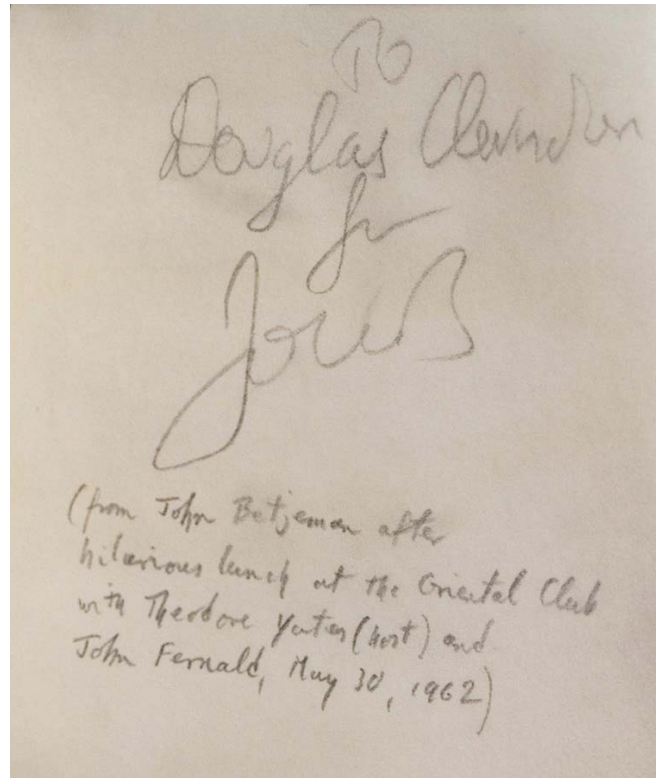 To
Douglas Cleverdon
fr
John B
(from John Betjeman after
hilarious lunch at the Oriental Club
with Theodore Yates (host) and
John Fernald, May 30, 1962)